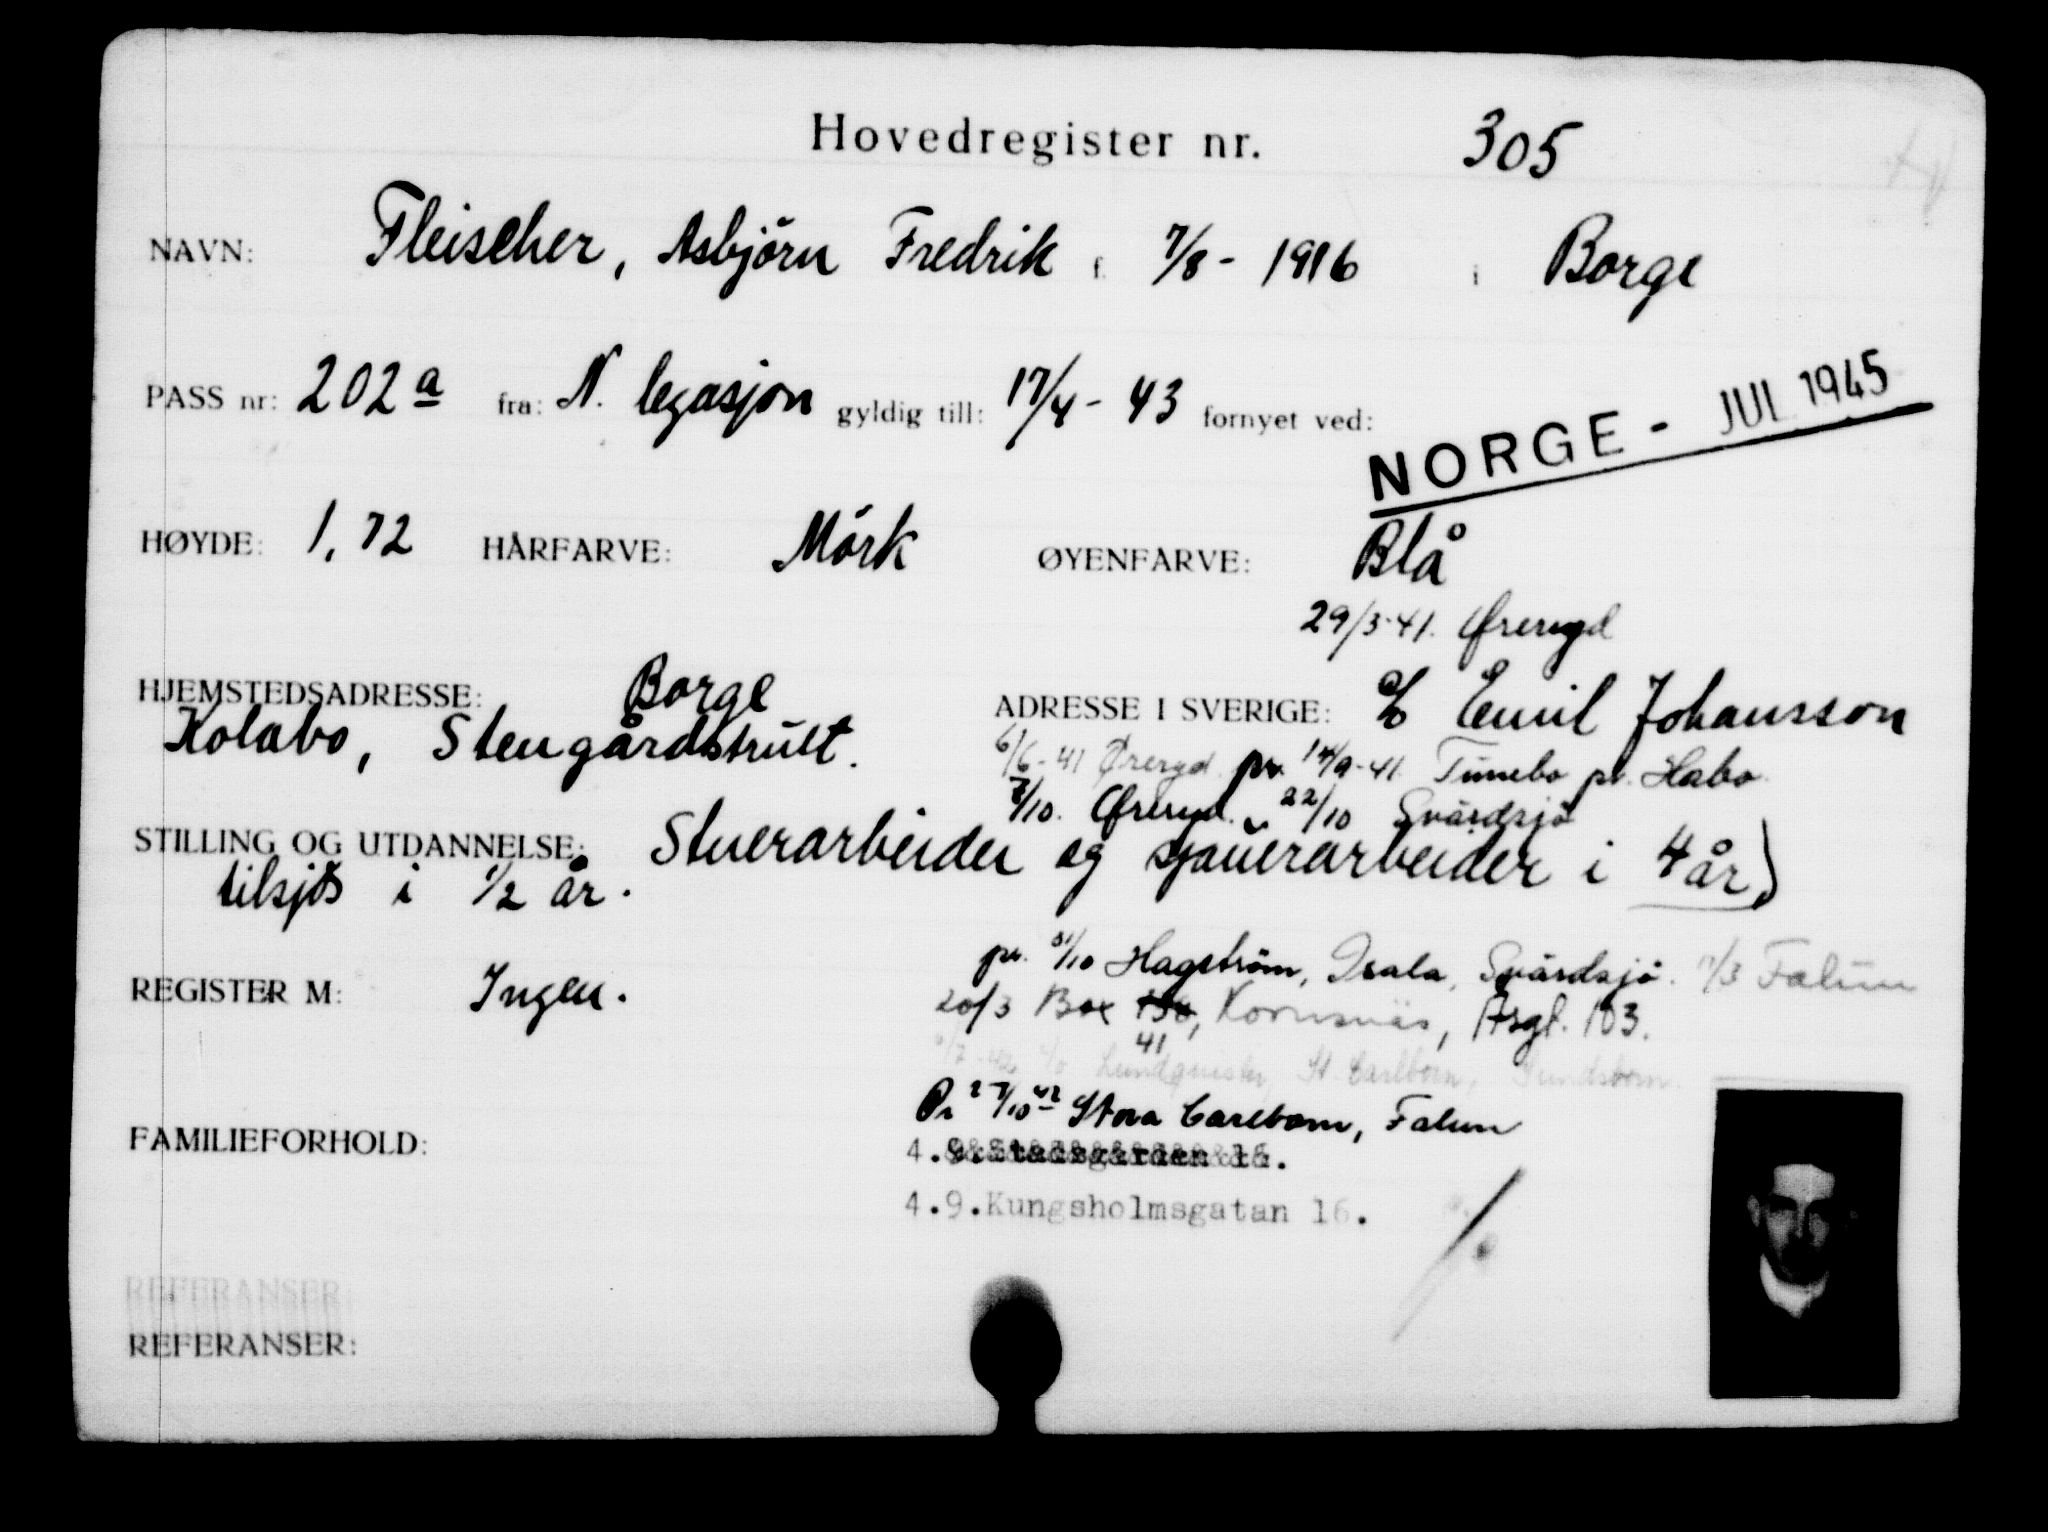 Hovedregister nr. 305
NAVN: Fleischer, Asbjörn Fredrik f. 7/8 - 1916 i Borge
PASS nr: 202 a fra: N. legasjon gyldig till: 17/4 - 43 fornyet ved:
NORGE - JUL 1945
HØYDE: 1,72 HÅRFARVE: Mörk ØYENFARVE: Blå
29/3-41. Øreryd
HJEMSTEDSADRESSE: Borge ADRESSE I SVERIGE: c/o Emil Johansson
Kolabo, Stengårdshult.
6/6-41 Øreryd pr. 14/9-41. Tunebo pr. Habo
7/10. Øreryd. 22/10 Svärdsjö
STILLING OG UTDANNELSE: Stuerarbeider og sjauerarbeider i 4 år
tilsjös i 1/2 år.
pr. 31/10 Hagström, Isala, Svärdsjö. 17/3 Falun
REGISTER M: Ingen. 20/3 Box 41, Kornsnäs, Asgt. 103.
c/o Lundquister, St. Carlbom, Sundsborn
Pr 27/10 42 Stora Carlbom, Falun
FAMILIEFORHOLD: 4.9.Stadsgården 16.
4.9.Kungsholmsgatan 16.
REFERANSER:
REFERANSER: